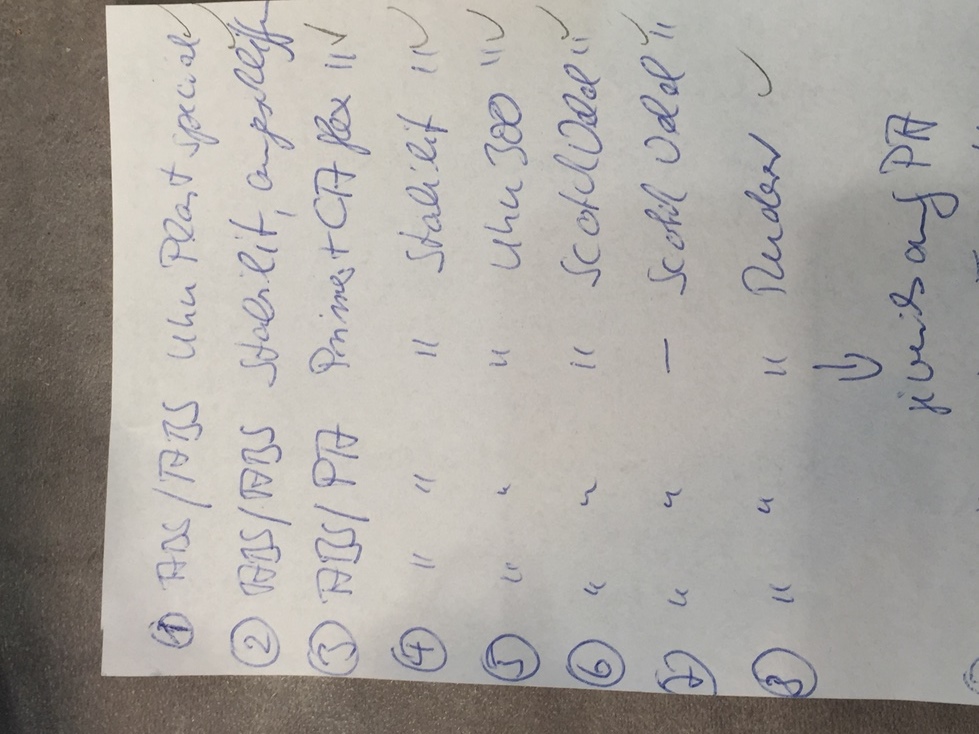 ① ABS/ABS Uhu Plast special
② ABS/ABS Stabilit, angeschliff
③ ABS/PA Primer+CA flex "
④ " " " Stabilit "
⑤ " " " Uhu 300 "
⑥ " " " Scotch Weld "
⑦ " " — Scotch Weld "
⑧ " " "
↓
jeweils auf PA